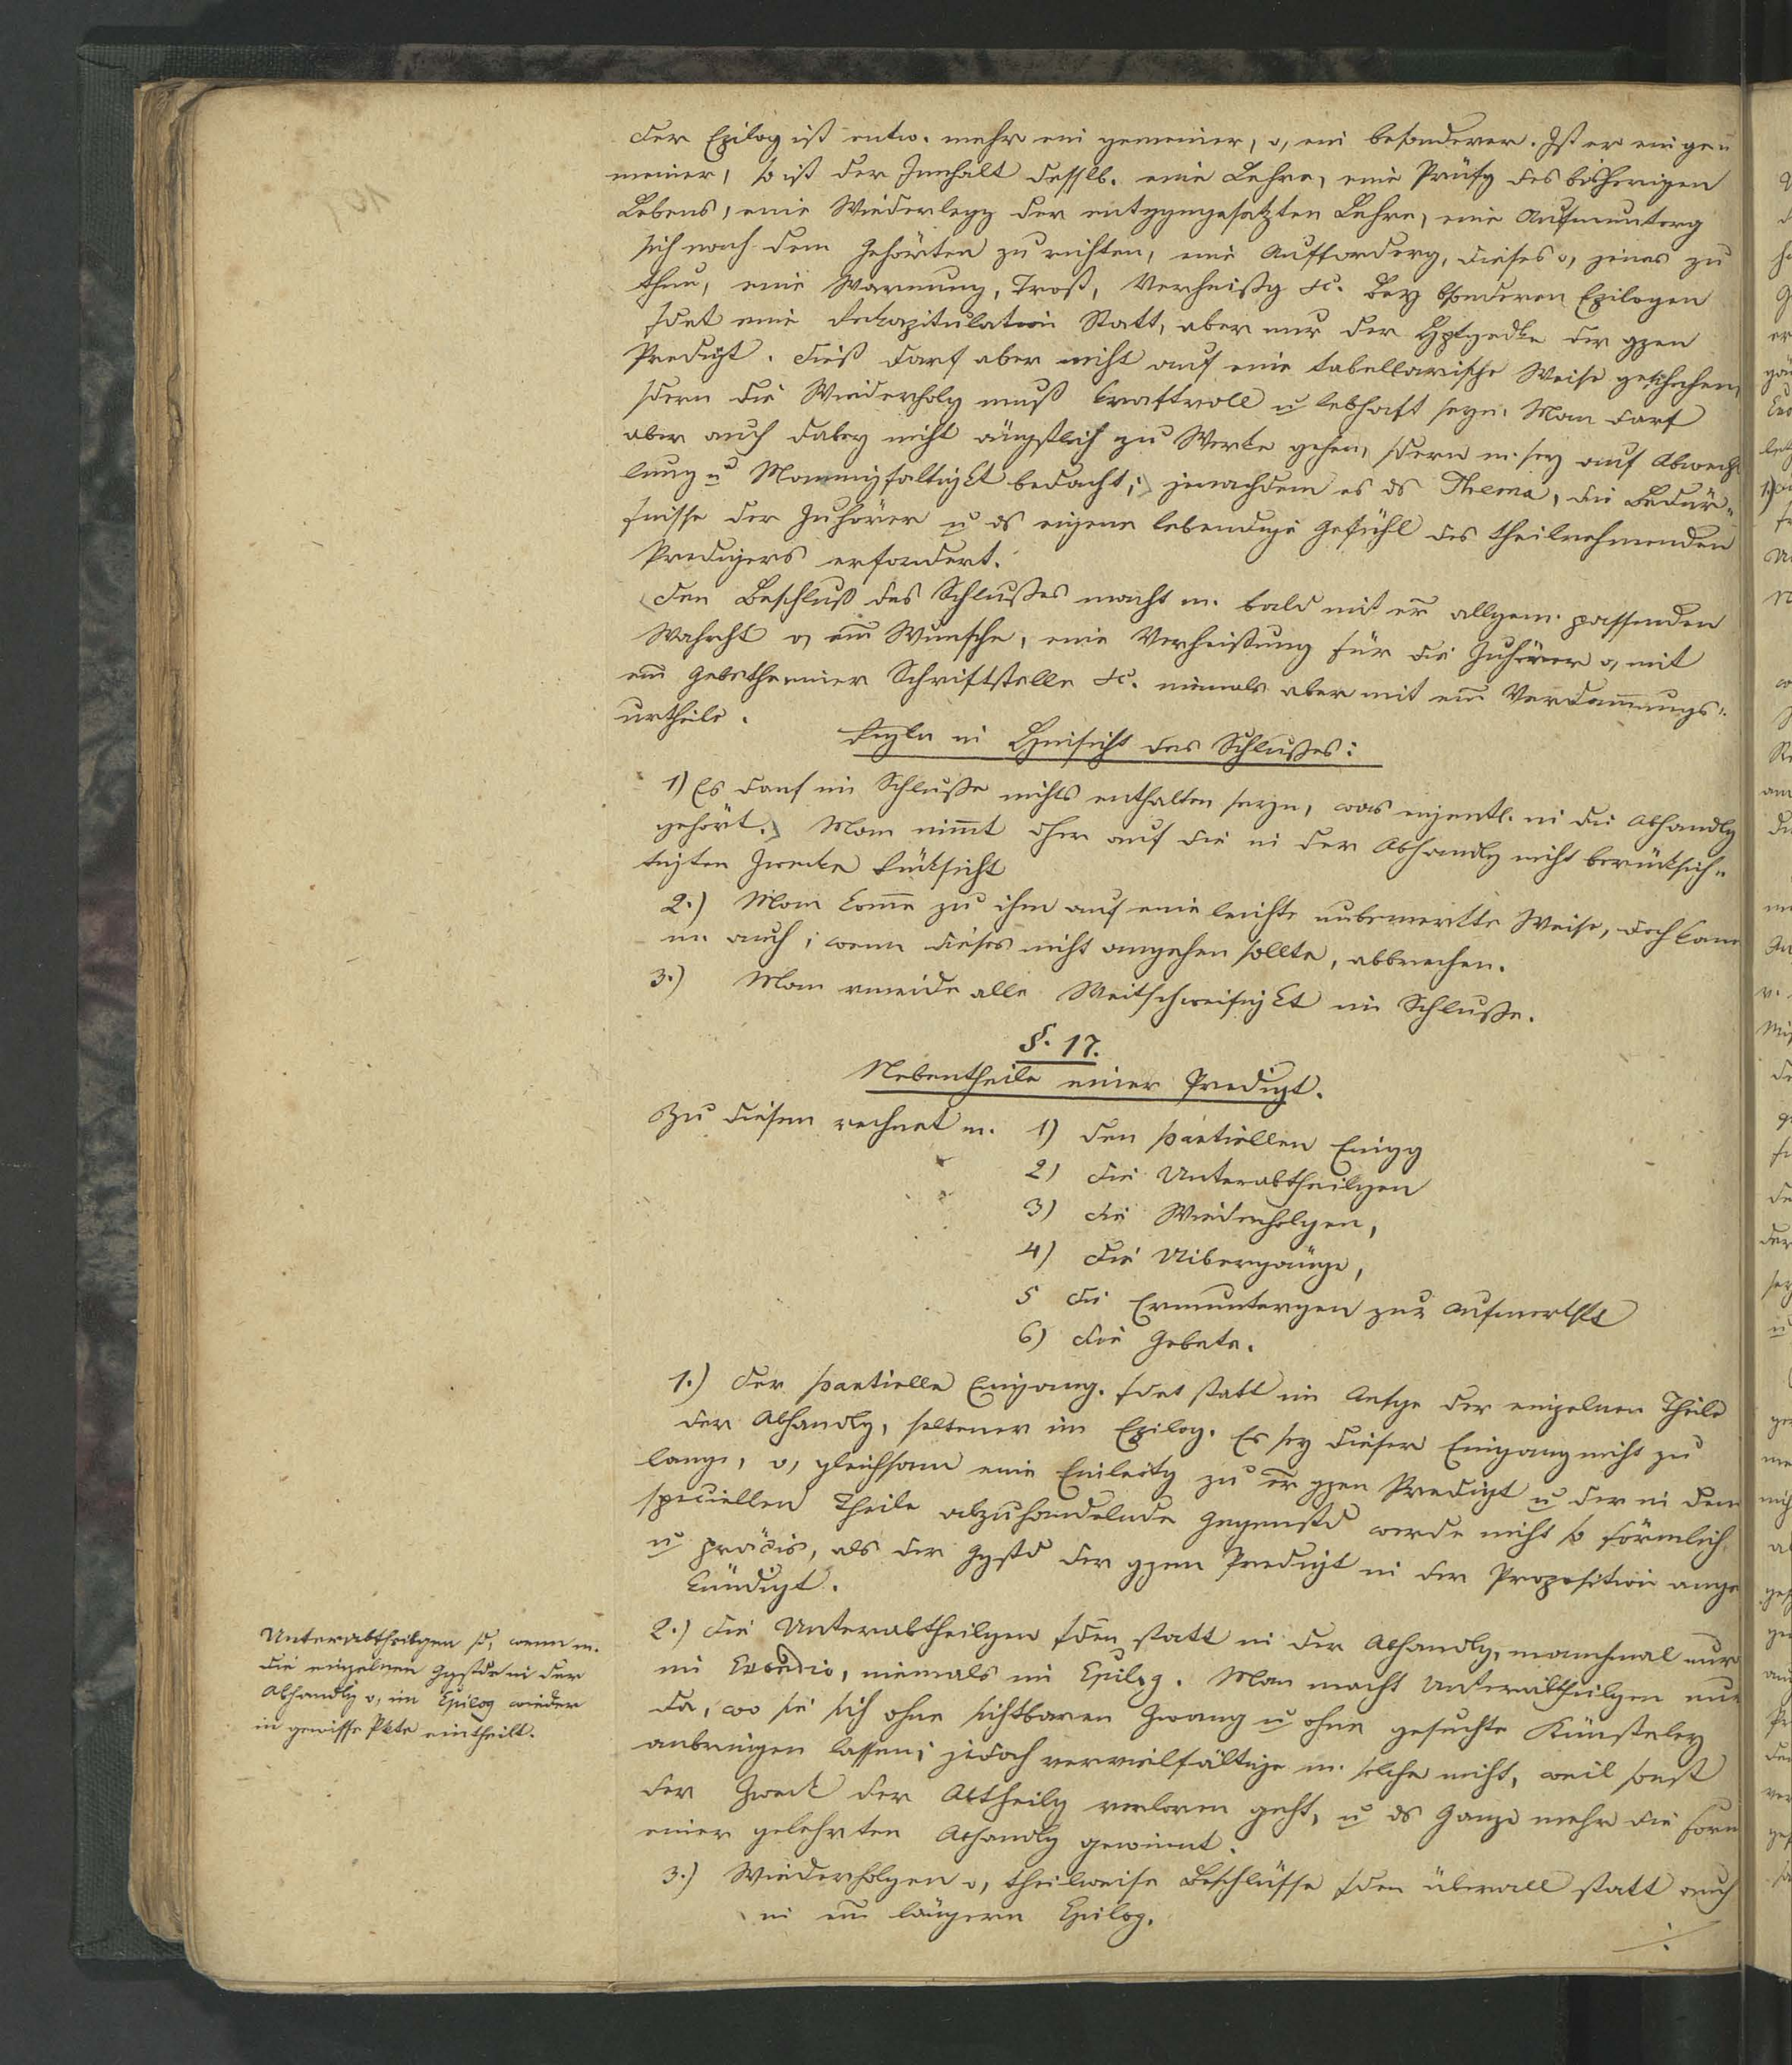 Der Epilog ist entw. mehr ein gemeiner, o, ein besonderer. Ist er ein ge=
meiner, so ist der Innhalt desslb. eine Lehre, eine Prüfg des bisherigen
Lebens, eine Wiederlegg der entggngesetzten Lehre, eine Aufmunterg
sich nach dem Gehörten zu richten, eine Aufforderg, dieses o, jenes zu
thun, eine Warnung, Trost, Verheißg &c. Bey bsonderen Epilogen
fdet eine Rekapitulation Statt, aber nur der Hptgedke der gzen
Predigt. Dieß darf aber nicht auf eine tabellarische Weise geschehen,
sdern die Wiederholg muß kraftvoll u lebhaft seyn. Man darf
aber auch dabey nicht ängstlich zu Werke gehen, sdern m. sey auf Abwechs
lung u Mannigfaltigkt bedacht; jenachdem es ds Thema, die Bedür=
fnisse der Zuhörer u ds eigene lebendige Gefühl des theilnehmenden
Predigers erfordert.
Den Beschluß des Schlußes macht m. bald mit er allgem. passenden
Wahrht o, em Wunsche, eine Verheißung für die Zuhörer o, mit
em Gebethe, einer Schriftstelle &c. niemals aber mit em Verdammungs=
urtheile.
Regln in Hinsicht des Schlußes:
1) Es darf im Schluße nichts enthalten seyn, was eigentl. in die Abhandlg
gehört. Man nimmt dher auf die in der Abhandlg nicht berücksich=
tigten Zwecke Rücksicht
2.) Man komme zu ihm auf eine leichte unbemerkte Weise, doch kann
m. auch, wenn dieses nicht angehen sollte, abbrechen.
3.) Man vmeide alle Weitschweifigkt im Schluße.
§. 17.
Nebentheile einer Predigt.
Zu diesen rechnet m. 1) den partiellen Eingg
2) die Unterabtheilgen
3) die Wiederholgen,
4) die Uibergänge,
5 die Ermuntergen zur Aufmerkskt
6) die Gebete.
1.) Der partielle Eingang. fdet statt im Anfge der einzelnen Theile
der Abhandlg, seltener im Epilog. Es sey dieser Eingang nicht zu
lange, o, gleichsam eine Einleitg zu er gzen Predigt u der in dem
speciellen Theile abzuhandelnde Gegenstd werde nicht so förmlich
u präcis, als der Ggstd der gzen Predigt in der Proposition ange
kündigt.
2.) Die Unterabtheilgen fden statt in der Abhandlg, manchmal nur
im Exordio, niemals im Epilog. Man macht Unterabtheilgen nur
da, wo sie sich ohne sichtbaren Zwang u ohne gesuchte Künsteley
anbringen lassen; jedoch vervielfältige m. solche nicht, weil sonst
der Zweck der Abtheilg verloren geht, u ds Ganze mehr die Form
einer gelehrten Abhandlg gewinnt.
3.) Wiederholgen o, theilweise Beschlüsse fden überall statt auch
in em längern Epilog.
./.
Unterabtheilgen sd, wenn m.
die einzelnen Ggstde in der
Abhandlg o, im Epilog wieder
in gewisse Pkte eintheilt.